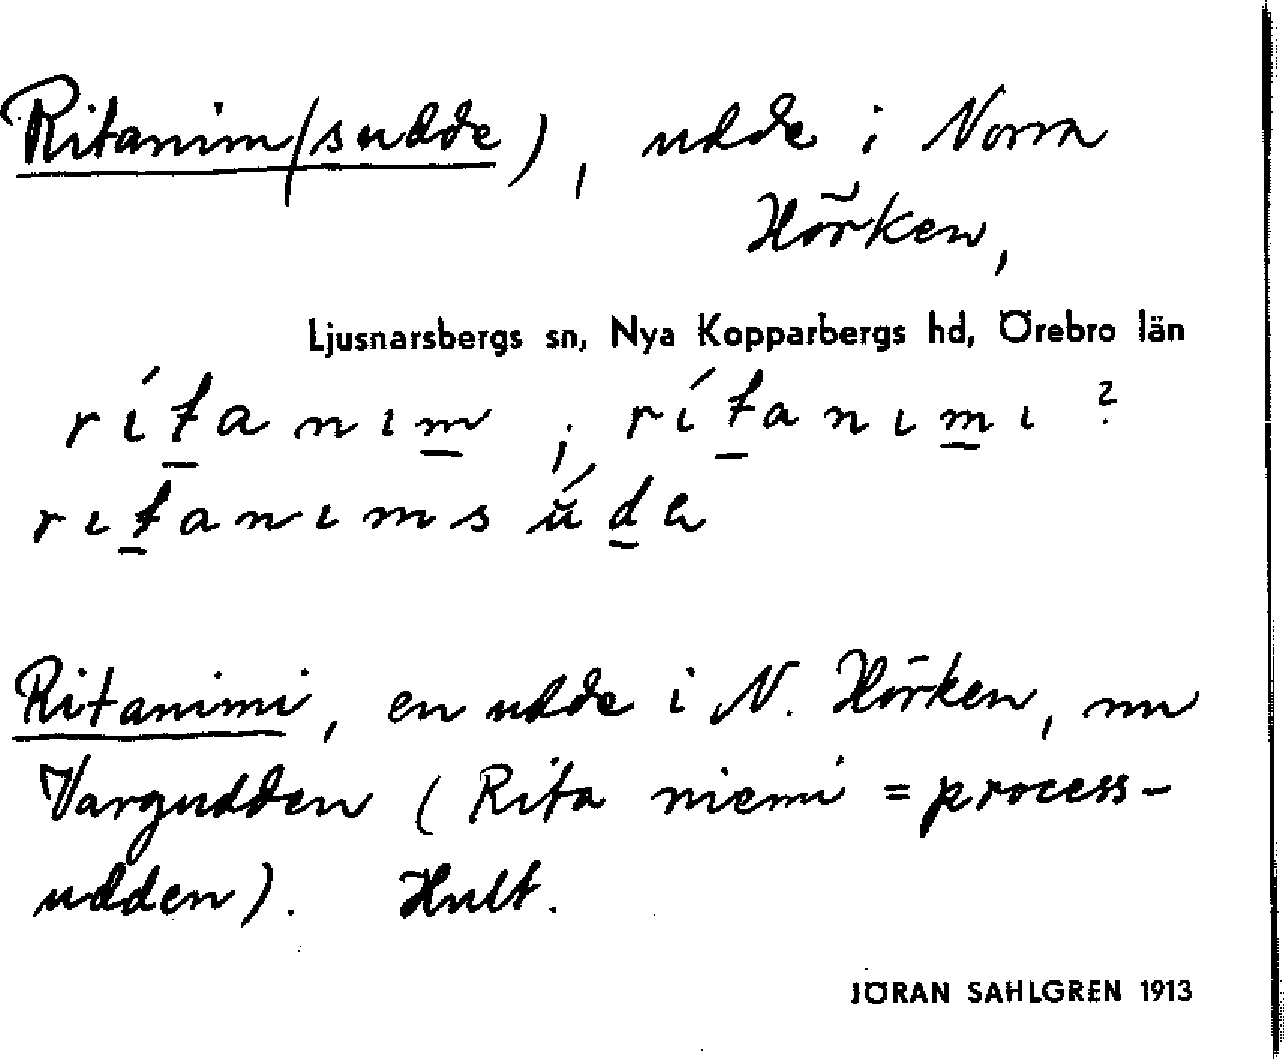 Ritanim(sudde), udde i Norra
Hörken,
Ljusnarsbergs sn, Nya Kopparbergs hd, Örebro län
rítanım ; rítanımı ?
rıtanımsúdə
Ritanimi, en udde i N. Hörken, nu
Vargudden (Rita niemi = process-
udden). Hult.
JÖRAN SAHLGREN 1913